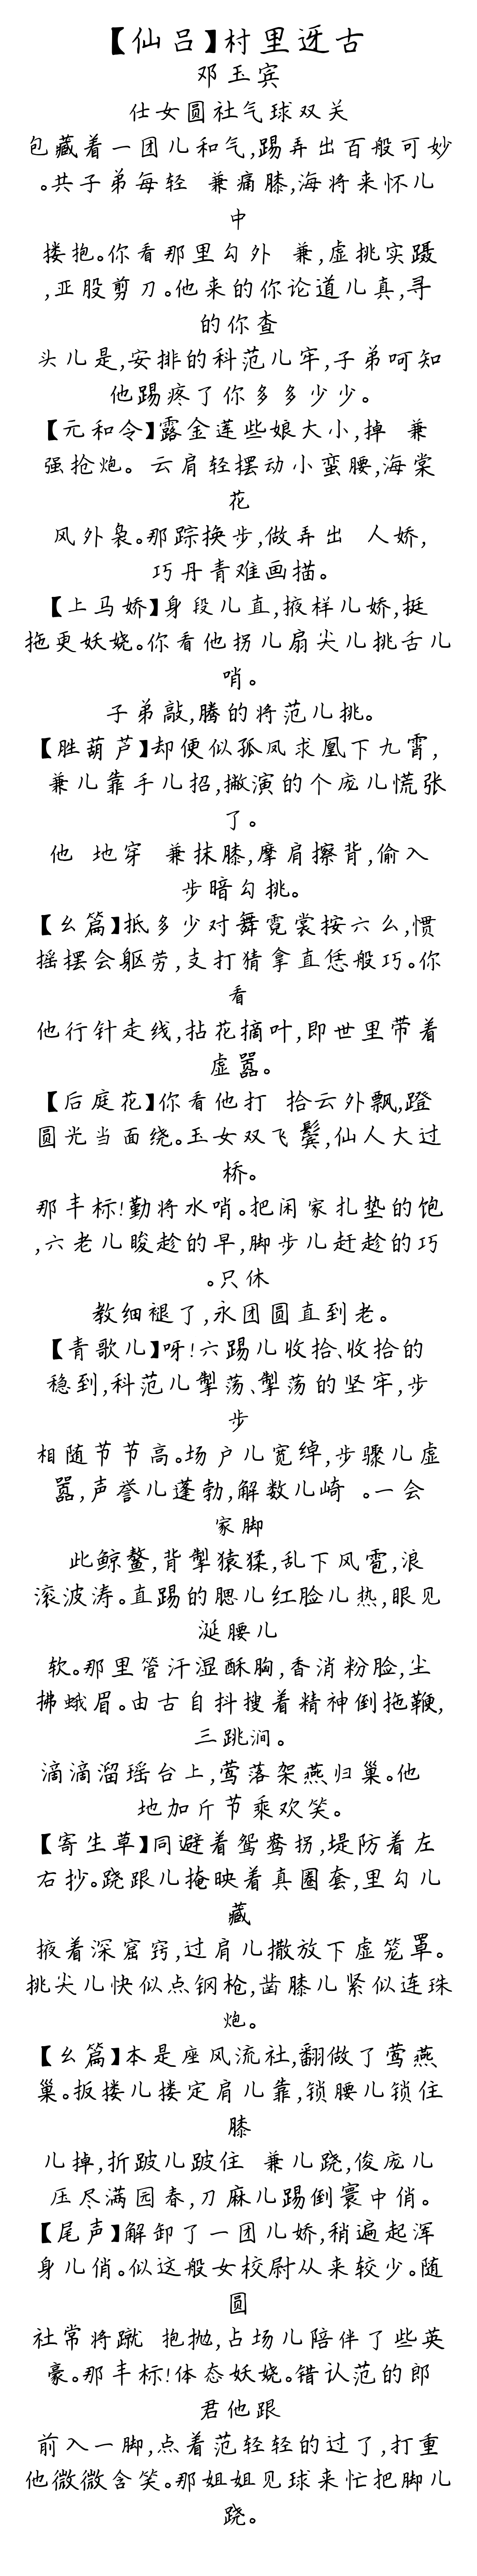 【仙吕】村里迓古
邓玉宾
仕女圆社气球双关
包藏着一团儿和气,踢弄出百般可妙
。共子弟每轻 兼痛膝,海将来怀儿
中
搂抱。你看那里勾外 兼,虚挑实蹑
,亚股剪刀。他来的你论道儿真,寻
的你查
头儿是,安排的科范儿牢,子弟呵知
他踢疼了你多多少少。
【元和令】露金莲些娘大小,掉 兼
强抢炮。 云肩轻摆动小蛮腰,海棠
花
风外袅。那踪换步,做弄出 人娇,
巧丹青难画描。
【上马娇】身段儿直,掖样儿娇,挺
拖更妖娆。你看他拐儿扇尖儿挑舌儿
哨。
子弟敲,腾的将范儿挑。
【胜葫芦】却便似孤凤求凰下九霄,
兼儿靠手儿招,撇演的个庞儿慌张
了。
他 地穿 兼抹膝,摩肩擦背,偷入
步暗勾挑。
【幺篇】抵多少对舞霓裳按六么,惯
摇摆会躯劳,支打猜拿直恁般巧。你
看
他行针走线,拈花摘叶,即世里带着
虚嚣。
【后庭花】你看他打 拾云外飘,蹬
圆光当面绕。玉女双飞鬓,仙人大过
桥。
那丰标!勤将水哨。把闲家扎垫的饱
,六老儿睃趁的早,脚步儿赶趁的巧
。只休
教细褪了,永团圆直到老。
【青歌儿】呀!六踢儿收拾、收拾的
稳到,科范儿掣荡、掣荡的坚牢,步
步
相随节节高。场户儿宽绰,步骤儿虚
嚣,声誉儿蓬勃,解数儿崎 。一会
家脚
此鲸鳌,背掣猿猱,乱下风雹,浪
滚波涛。直踢的腮儿红脸儿热,眼见
涎腰儿
软。那里管汗湿酥胸,香消粉脸,尘
拂蛾眉。由古自抖搜着精神倒拖鞭,
三跳涧。
滴滴溜瑶台上,莺落架燕归巢。他
地加斤节乘欢笑。
【寄生草】同避着鸳鸯拐,堤防着左
右抄。跷跟儿掩映着真圈套,里勾儿
藏
掖着深窟窍,过肩儿撒放下虚笼罩。
挑尖儿快似点钢枪,凿膝儿紧似连珠
炮。
【幺篇】本是座风流社,翻做了莺燕
巢。扳搂儿搂定肩儿靠,锁腰儿锁住
膝
儿掉,折跛儿跛住 兼儿跷,俊庞儿
压尽满园春,刀麻儿踢倒寰中俏。
【尾声】解卸了一团儿娇,稍遍起浑
身儿俏。似这般女校尉从来较少。随
圆
社常将蹴 抱抛,占场儿陪伴了些英
豪。那丰标!体态妖娆。错认范的郎
君他跟
前入一脚,点着范轻轻的过了,打重
他微微含笑。那姐姐见球来忙把脚儿
跷。